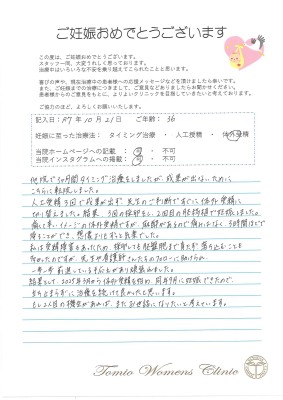 ご妊娠おめでとうございます
この度は、ご妊娠おめでとうございます。
スタッフ一同、大変うれしく思っております。
治療中はいろいろな不安を乗り越えてこられたことと思います。
喜びの声や、現在治療中の患者様への応援メッセージなどを頂けましたら幸いです。
また、ご妊娠までの治療につきまして、ご意見などありましたらお聞かせください。
患者様からのご意見をもとに、よりよいクリニックを目指していきたいと考えております。
ご協力のほど、よろしくお願いいたします。
記入日:R7年10月21日 ご年齢:36
妊娠に至った治療法:タイミング治療・人工授精・体外受精
当院ホームページへの記載:可・不可
当院インスタグラムへの掲載:可・不可
他院で 月間タイミング治療をしましたが、成果が出ないために
こちらに転院しました。
人工授精3回で成果が出ず、先生のご判断ですぐに体外受精に
切り替えました。結果、 回の採卵をし、2回目の胚移植で妊娠しました。
痛くて辛いイメージの体外受精ですが、麻酔があるので痛みはなく、 時間ほどで
帰ることができ、想像よりも楽でした。
私は受精障害もあったため、採卵しても胚盤胞まで育たず落ち込むことも
多かったのですが、先生や看護師さんたちのフォローに助けられ、
一歩一歩前進している手応えがあり頑張れました。
結果として、2025年 月から体外受精を初め、同年9月に妊娠できたので、
あきらまらずに治療を続けて良かったと思います。
もし2人目の機会があれば、またお世話になりたいと考えています。
Tomio Womens Clinic